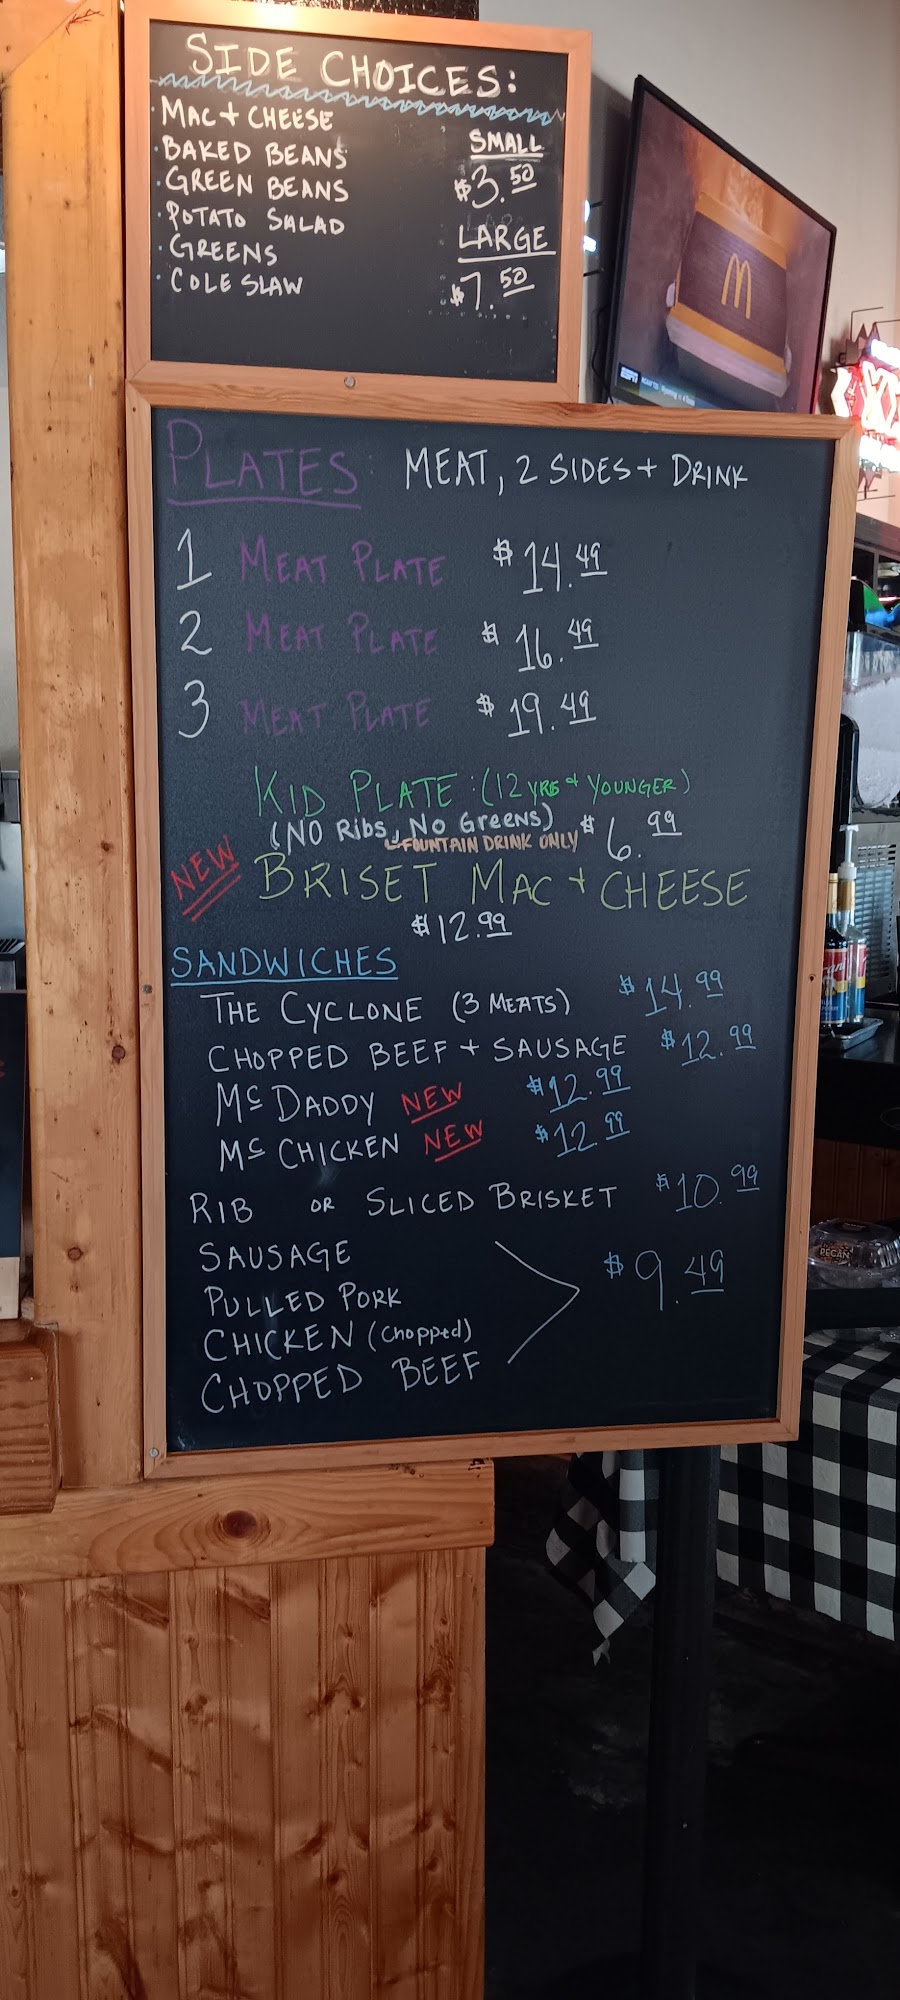 SIDE CHOICES:
· MAC + CHEESE
· BAKED BEANS
· GREEN BEANS
· POTATO SALAD
· GREENS
· COLE SLAW
SMALL
$3.50
LARGE
$7.50
PLATES: MEAT, 2 SIDES + DRINK
1 MEAT PLATE $14.49
2 MEAT PLATE $16.49
3 MEAT PLATE $19.49
KID PLATE: (12 YRS + YOUNGER)
(NO Ribs, NO Greens) $6.99
FOUNTAIN DRINK ONLY
NEW BRISET MAC + CHEESE
$12.99
SANDWICHES
THE CYCLONE (3 MEATS) $14.99
CHOPPED BEEF + SAUSAGE $12.99
MC DADDY NEW $12.99
MC CHICKEN NEW $12.99
RIB OR SLICED BRISKET $10.99
SAUSAGE
PULLED PORK
CHICKEN (Chopped)
CHOPPED BEEF
$9.49
ESPN
PECAN